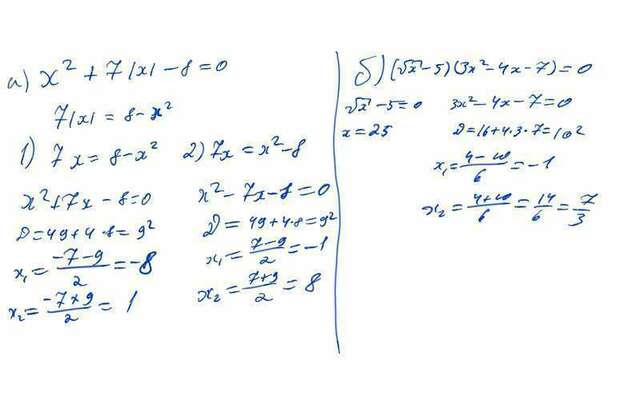 а) x² + 7|x| − 8 = 0
7|x| = 8 − x²
1) 7x = 8 − x²
x² + 7x − 8 = 0
D = 49 + 4·8 = 9²
x₁ = (−7−9)/2 = −8
x₂ = (−7+9)/2 = 1
2) 7x = x² − 8
x² − 7x − 8 = 0
D = 49 + 4·8 = 9²
x₁ = (7−9)/2 = −1
x₂ = (7+9)/2 = 8
б) (√x − 5)(3x² − 4x − 7) = 0
√x − 5 = 0
x = 25
3x² − 4x − 7 = 0
D = 16 + 4·3·7 = 10²
x₁ = (4−10)/6 = −1
x₂ = (4+10)/6 = 14/6 = 7/3